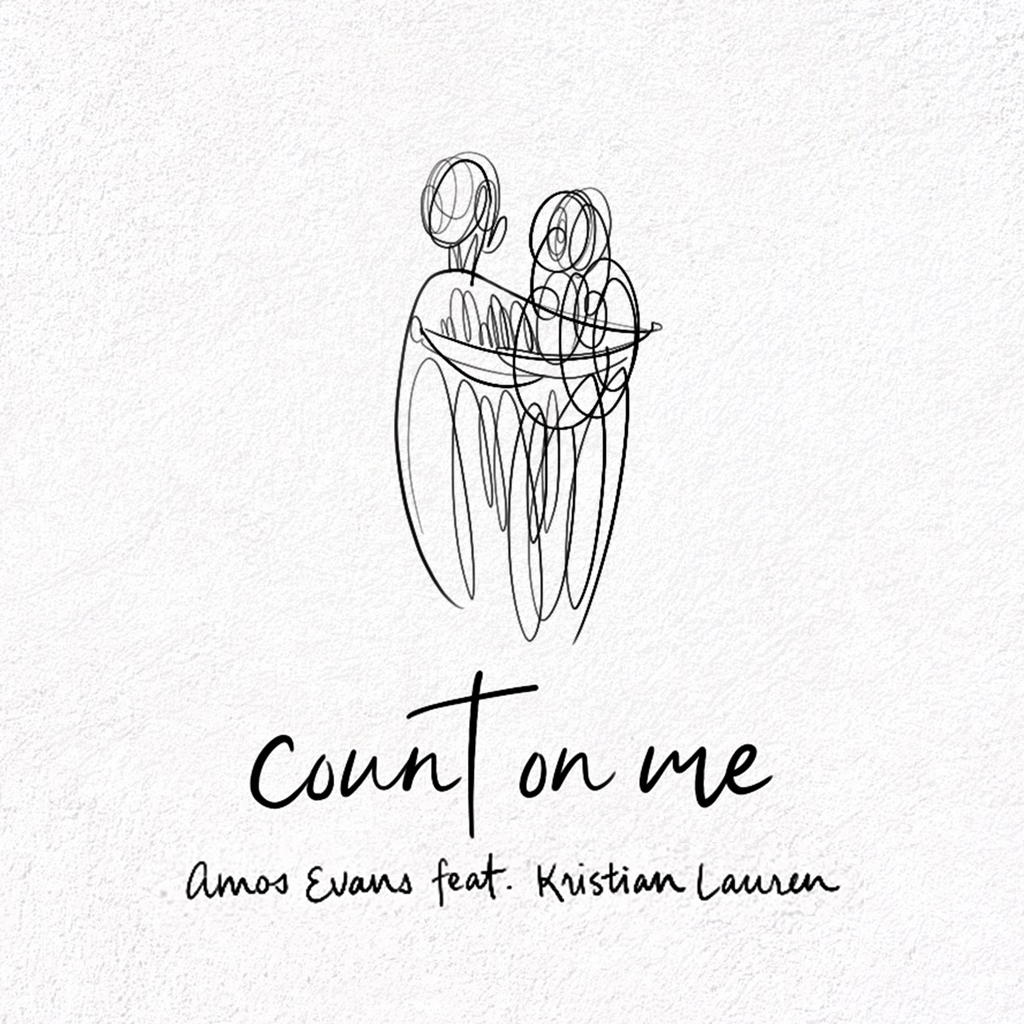 count on me
Amos Evans feat. Kristian Lauren